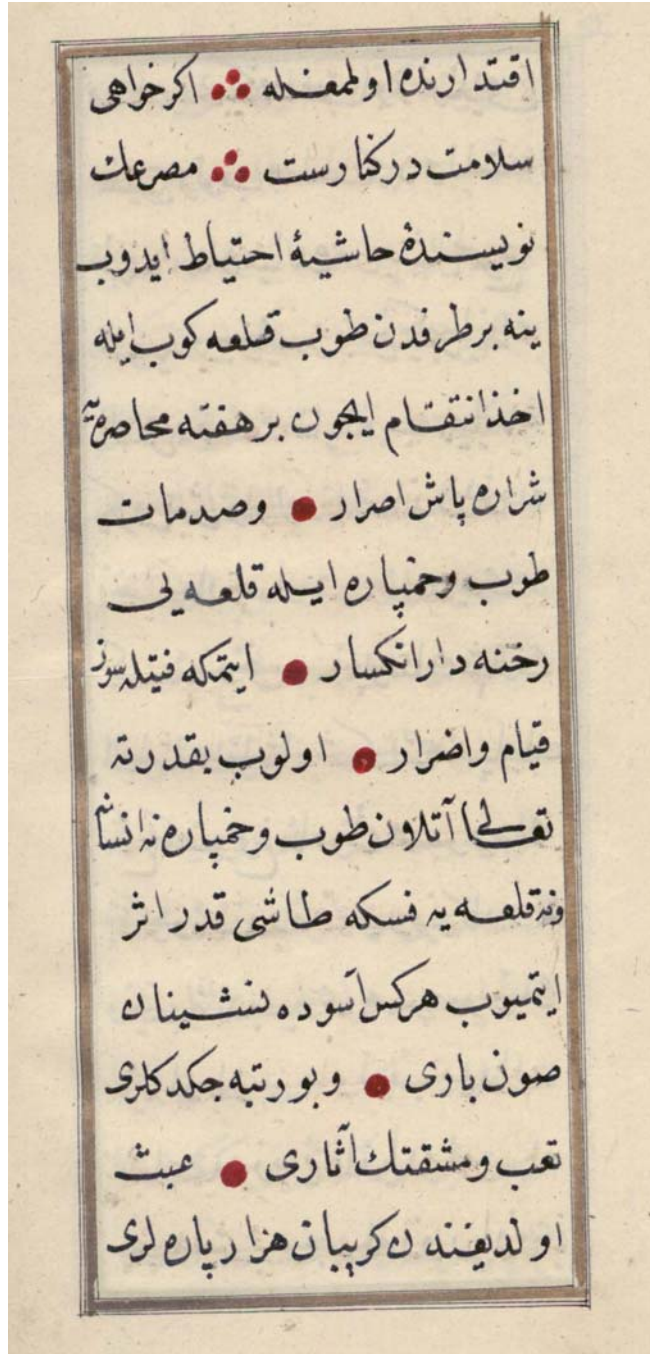 اقتدارنده اولمغله ∴ اكر خواهى
سلامت در كنارست ∴ مصرعك
نويسندۀ حاشيۀ احتياط ايدوب
ينه بر طرفدن طوب قلعه كوب ايله
اخذ انتقام ايچون بر هفته محاصره‌يه
شراره پاش اصرار ● وصدمات
طوب وخمپاره ايله قلعه يى
رخنه دار انكسار ● ايتمكه فتيله سوز
قيام واضرار ● اولوب بقدرته
تعالى آتلان طوب وخمپاره نه انسانه
ونه قلعه يه فسكه طاشى قدر اثر
ايتميوب هركس آسوده نشينان
صون بارى ● وبو رتبه چكدكلرى
تعب ومشقتك آثارى ● عبث
اولديغندن كريبان هزار پاره لرى